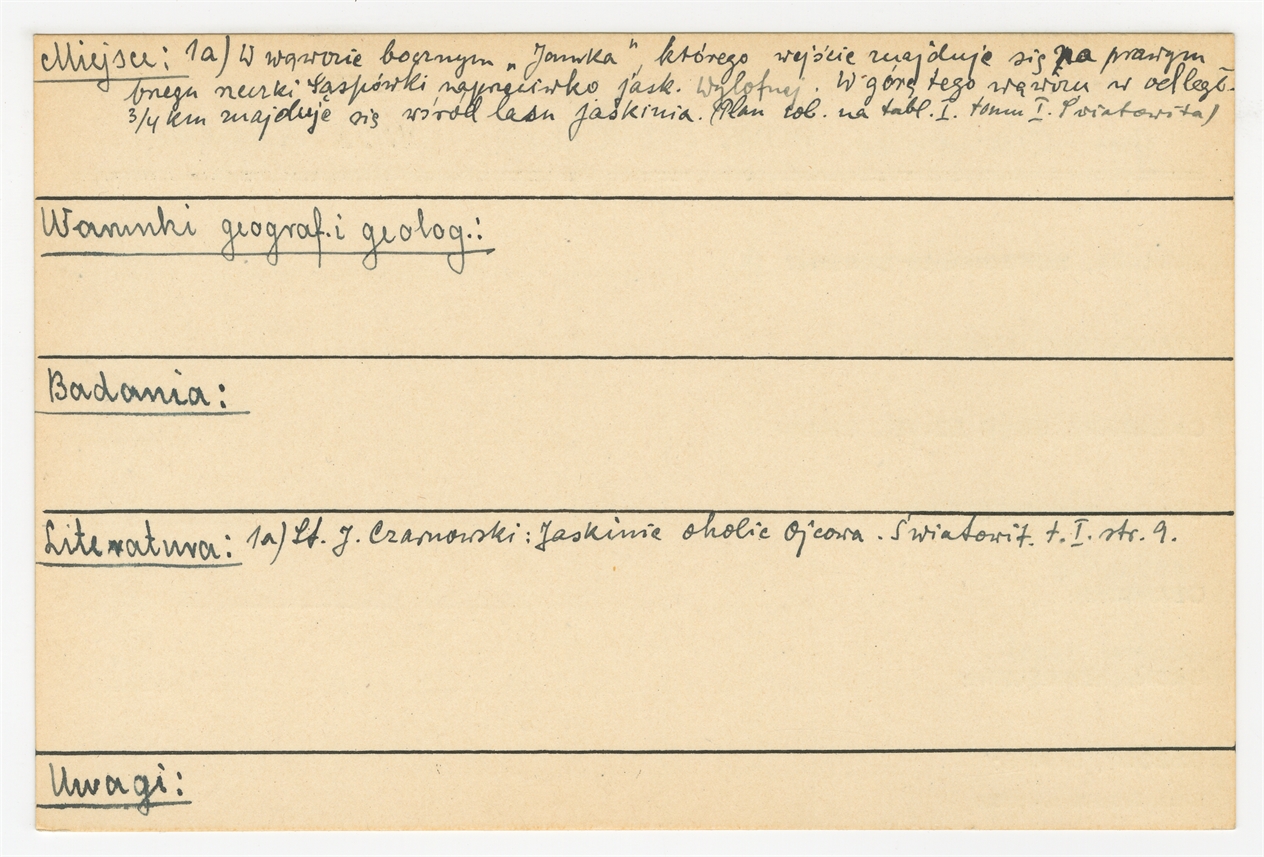 Miejsce: 1a) W wąwozie bocznym „Jamka", którego wejście znajduje się na prawym
brzegu rzeczki Sąspówki naprzeciwko jask. Wylotnej. W górę tego wąwozu w odległ.
3/4 km znajduje się wśród lasu jaskinia. (Plan zob. na tabl. I. tomu I. Światowita)
Warunki geograf. i geolog.:
Badania:
Literatura: 1a) St. J. Czarnowski: Jaskinie okolic Ojcowa. Światowit. t. I. str. 9.
Uwagi: